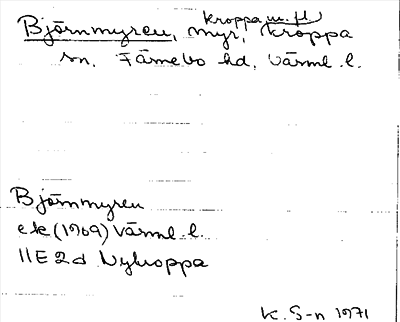 kroppa m. fl
Björnmyren, myr, kroppa
sn, Färnebo hd, Värml. l.
Björnmyren
ek (1969) Värml. l.
11E 2d Nykroppa
K. S-n 1971